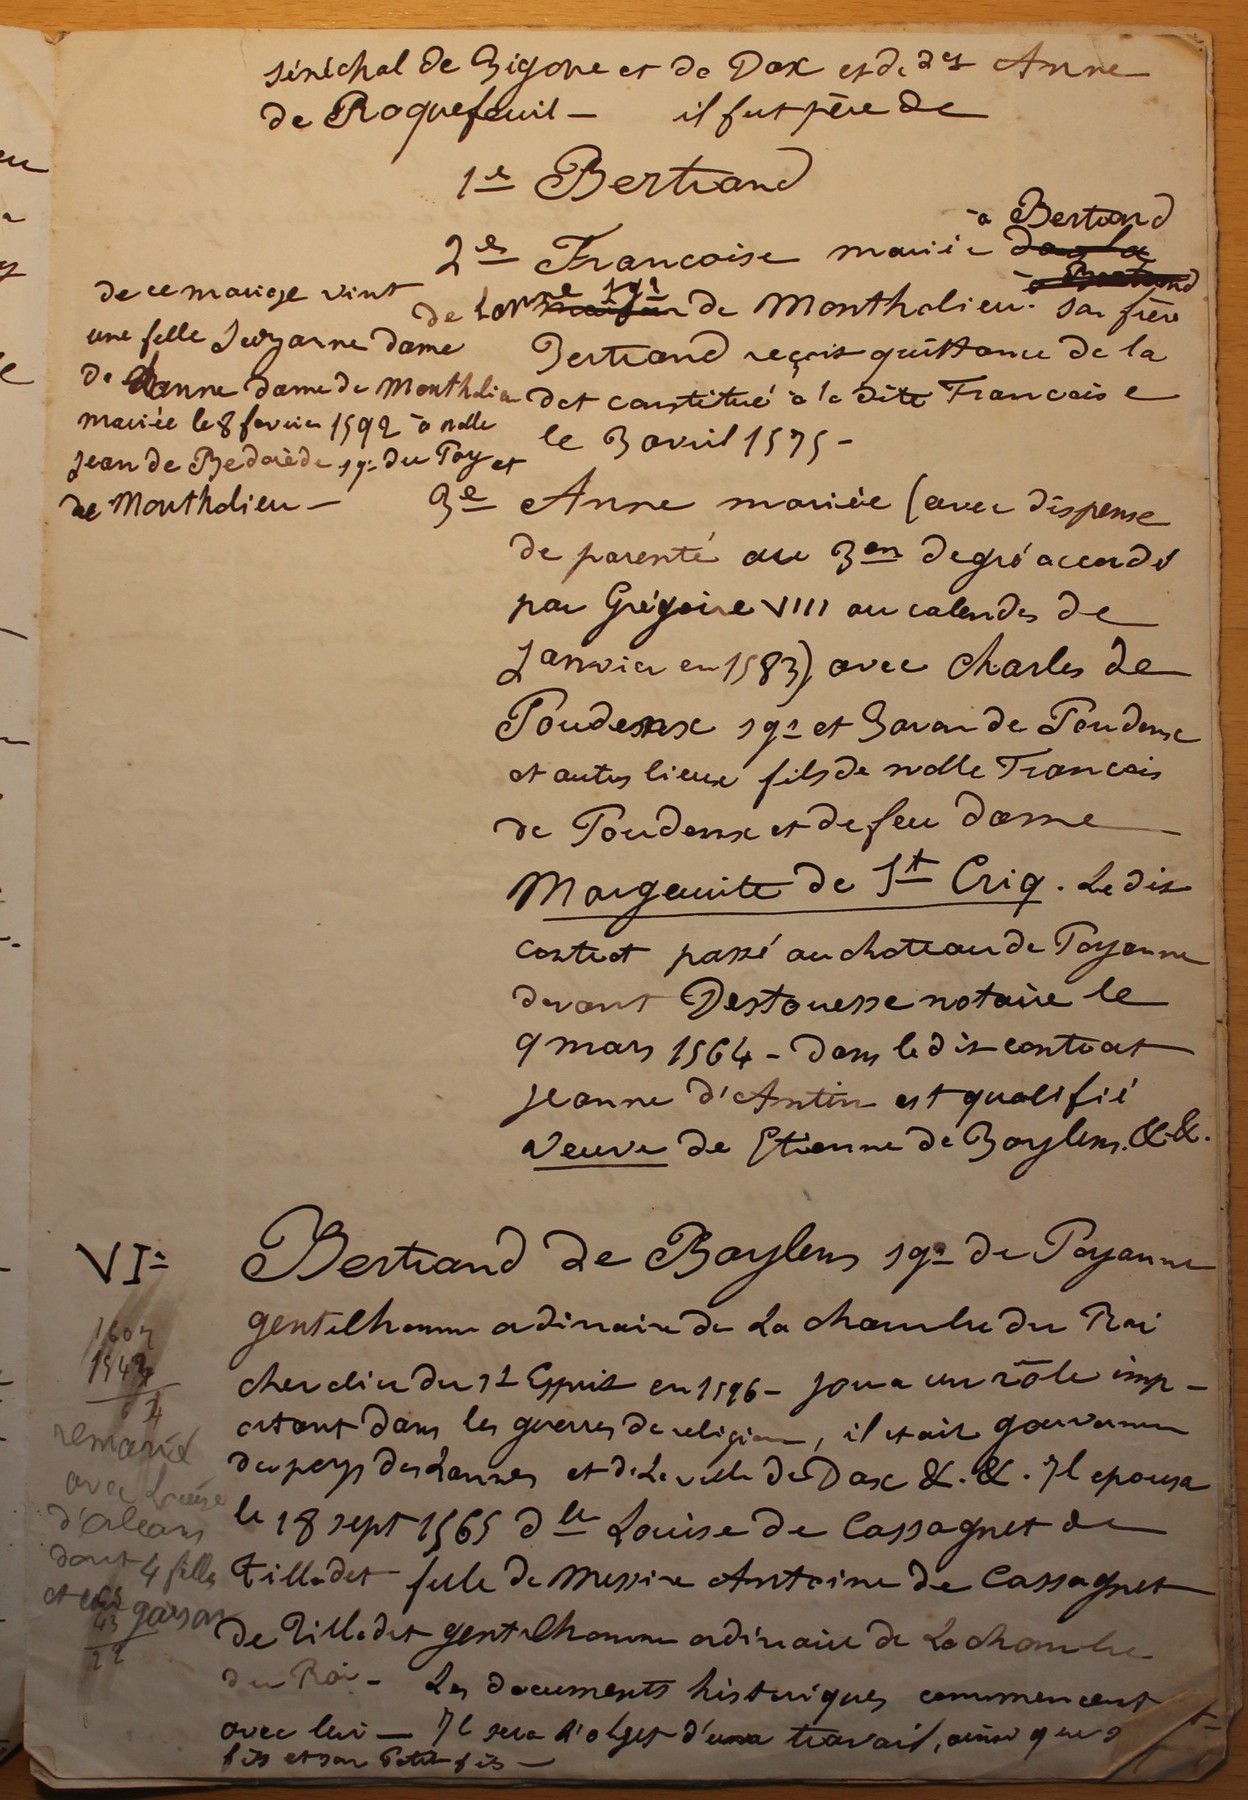 sénéchal de Bigorre et de Dax et de des Anne
de Roquefeuil — il fut père de
1e Bertrand
2e Francoise mariée à Bertrand
de de Montholieu. Son frère
Bertrand reçoit quittance de la
dot constitué à la dite Francoise
le 3 avril 1575 -
de ce mariage vint
une fille Suzanne dame
de Lanne dame de Montholieu
mariée le 8 fevrier 1592 à noble
Jean de Bedorède sgr du Poy et
de Montholieu —
3e Anne mariée (avec dispense
de parenté au 3en degré accordé
par Grégoire VIII au calendes de
Janvier en 1583) avec Charles de
Poudenx sgr et Baron de Poudenx
et autres lieux fils de noble Francois
de Poudenx et de feu dame
Marguerite de St Criq. Le dit
contrat passé au chateau de Poyanne
devant Destouesse notaire le
9 mars 1564 - Dans le dit contrat
Jeanne d'Antin est qualifié
veuve de Etienne de Baylens. &.&.
VIe
Bertrand de Baylens sgr de Poyanne
gentilhomme ordinaire de La chambre du Roi
chevalier du St Esprit en 1596 - joua un rôle imp-
ortant dans les guerres de religion, il était gouverneur
du pays des Lannes et de La ville de Dax &. &. Il epousa
le 18 sept 1565 dlle Louise de Cassagnet de
Tilladet fille de Messire Antoine de Cassagnet
de Tilladet gentilhomme ordinaire de La chambre
du Roi - Les documents historiques commencent
avec lui — Il sera l'objet d'un travail, ainsi que s
fils et son Petit fils —
1607
1542
remarié
avec Louise
d'Orleans
dont 4 filles
et un garson
43
22